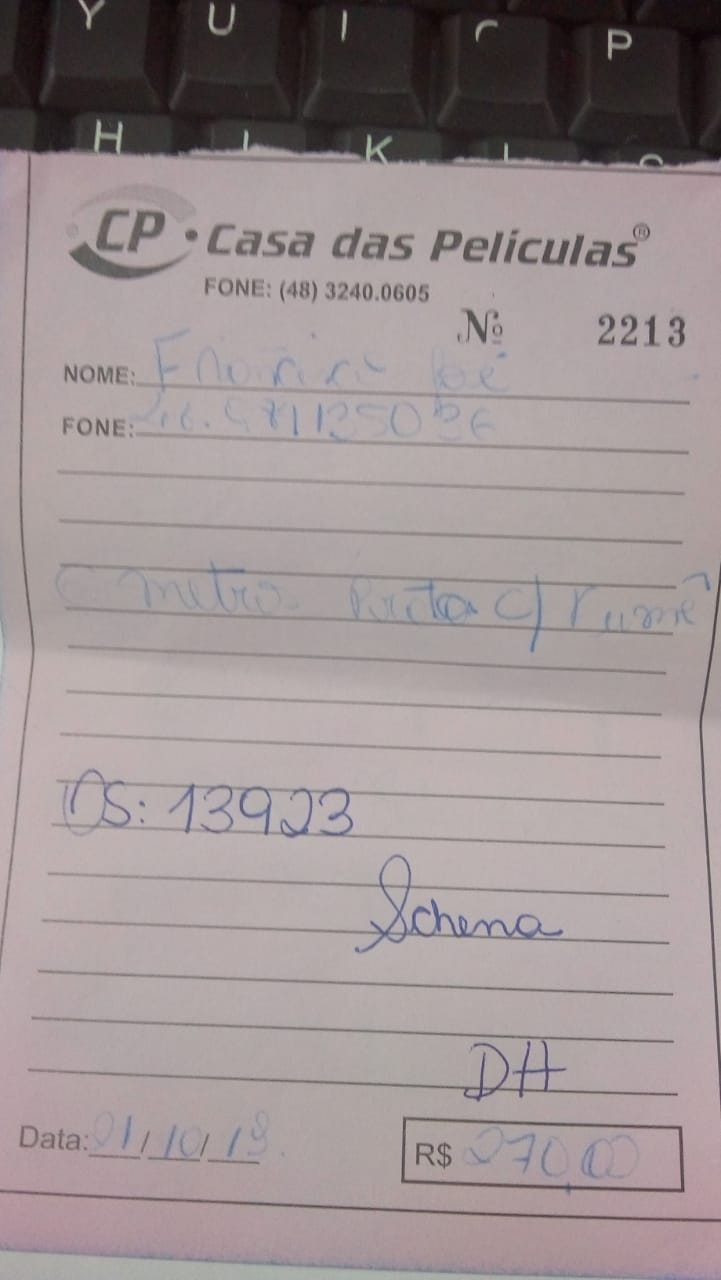 Y U I P
H K
CP · Casa das Películas®
FONE: (48) 3240.0605
Nº 2213
NOME:
FONE:
metro c/
OS: 13923
Schena
DH
Data: 01/10/19
R$ 270,00